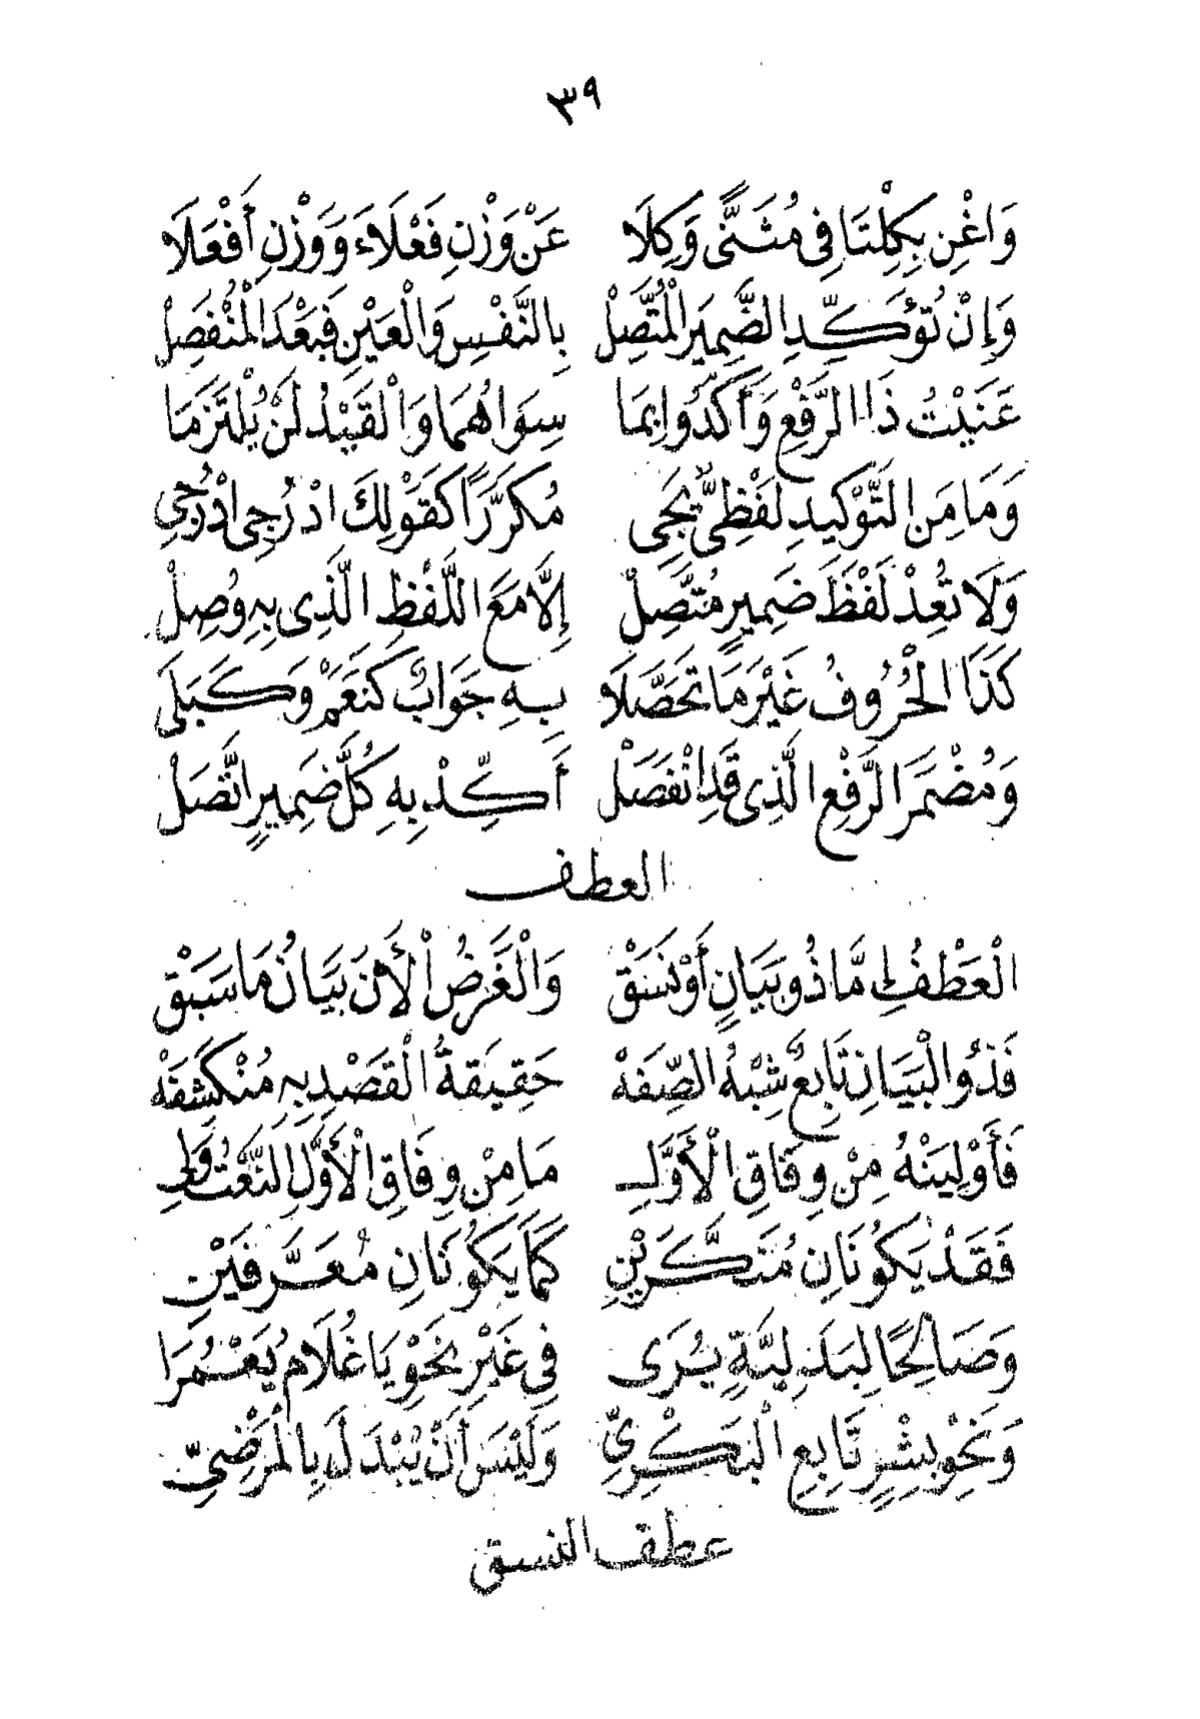 ٣٩
وَاغْنِ بِكِلْتَا فِي مُثَنًّى وَكِلَا عَنْ وَزْنِ فَعْلَاءَ وَوَزْنِ أَفْعَلَا
وَإِنْ تُؤَكِّدِ الضَّمِيرَ الْمُتَّصِلْ بِالنَّفْسِ وَالْعَيْنِ فَبَعْدَ الْمُنْفَصِلْ
عَنَيْتُ ذَا الرَّفْعِ وَأَكَّدُوا بِمَا سِوَاهُمَا وَالْقَيْدُ لَنْ يُلْتَزَمَا
وَمَا مِنَ التَّوْكِيدِ لَفْظِيٌّ يَجِى مُكَرَّرًا كَقَوْلِكَ ادْرُجِى ادْرُجِى
وَلَا تُعِدْ لَفْظَ ضَمِيرٍ مُتَّصِلْ إِلَّا مَعَ اللَّفْظِ الَّذِى بِهِ وُصِلْ
كَذَا الْحُرُوفُ غَيْرَ مَا تَحَصَّلَا بِهِ جَوَابٌ كَنَعَمْ وَكَبَلَى
وَمُضْمَرَ الرَّفْعِ الَّذِى قَدِ انْفَصَلْ أَكِّدْ بِهِ كُلَّ ضَمِيرٍ اتَّصَلْ
العطف
الْعَطْفُ إِمَّا ذُو بَيَانٍ أَوْ نَسَقْ وَالْغَرَضُ الْأَنَ بَيَانُ مَا سَبَقْ
فَذُو الْبَيَانِ تَابِعٌ شِبْهُ الصِّفَهْ حَقِيقَةُ الْقَصْدِ بِهِ مُنْكَشِفَهْ
فَأَوْلِيَنْهُ مِنْ وِفَاقِ الْأَوَّلِ مَا مِنْ وِفَاقِ الْأَوَّلِ النَّعْتُ وَلِى
فَقَدْ يَكُونَانِ مُنَكَّرَيْنِ كَمَا يَكُونَانِ مُعَرَّفَيْنِ
وَصَالِحًا لِبَدَلِيَّةٍ يُرَى فِي غَيْرِ نَحْوِ يَا غُلَامُ يَعْمُرَا
وَنَحْوِ بِشْرٍ تَابِعِ الْبَكْرِيِّ وَلَيْسَ أَنْ يُبْدَلَ بِالْمَرْضِيِّ
عطف النسق